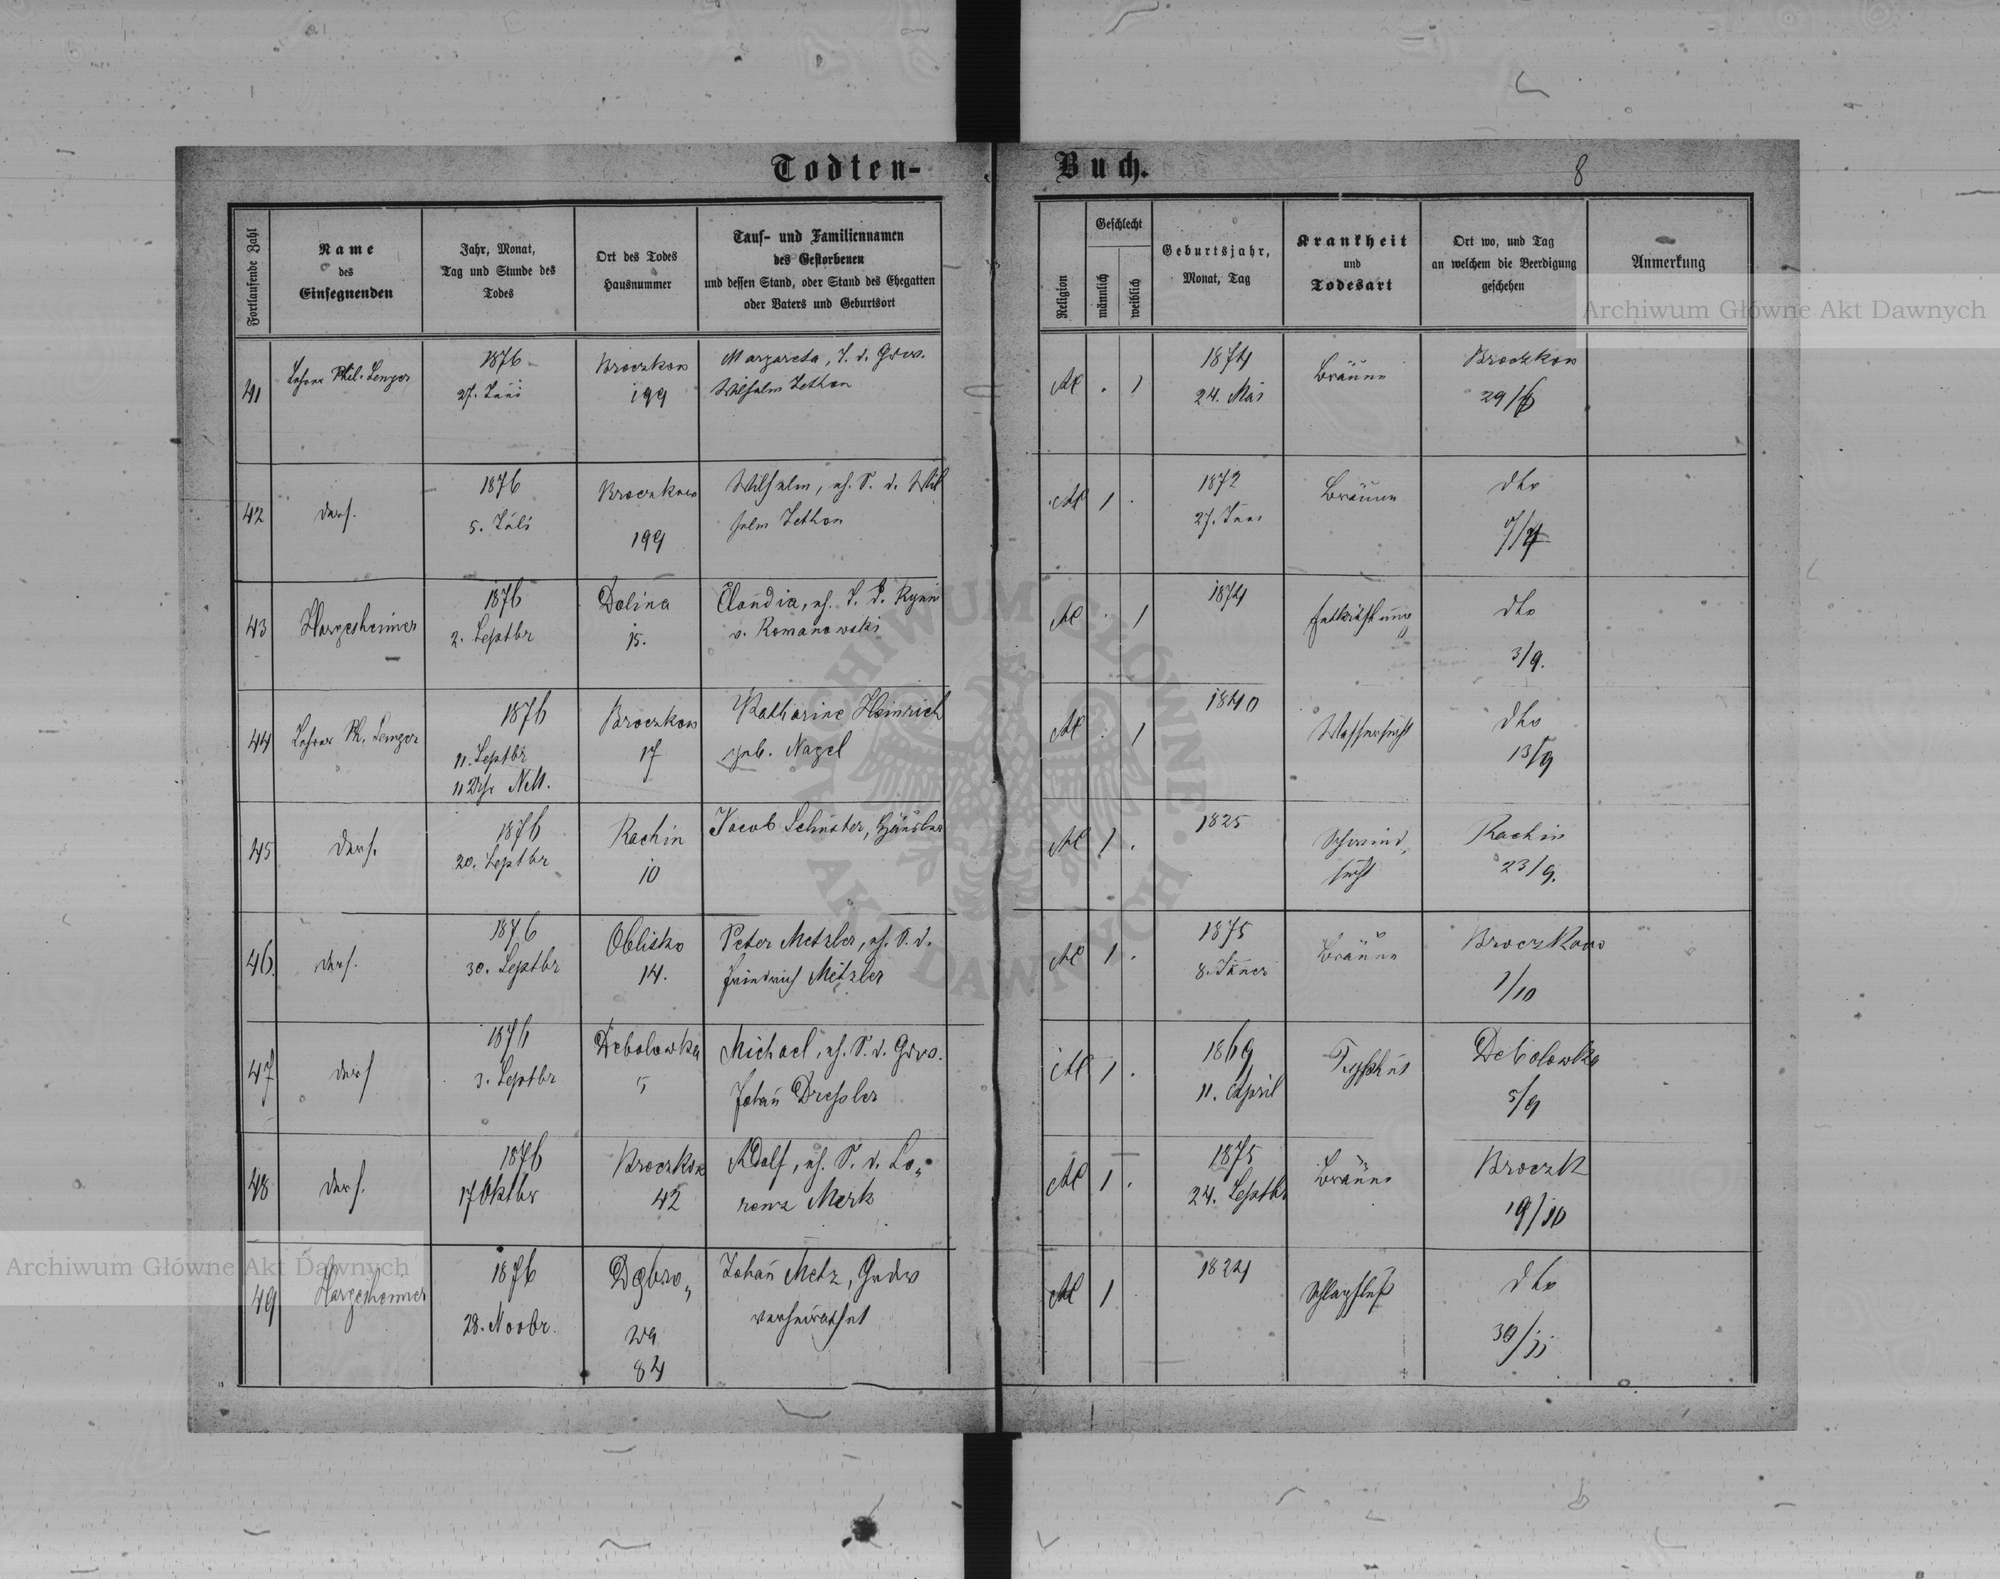 Todten-Buch.
8
Fortlaufende Zahl
Name
des
Einsegnenden
Jahr, Monat,
Tag und Stunde des
Todes
Ort des Todes
Hausnummer
Tauf- und Familiennamen
des Gestorbenen
und dessen Stand, oder Stand des Ehegatten
oder Vaters und Geburtsort
Religion
Geschlecht
männlich
weiblich
Geburtsjahr,
Monat, Tag
Krankheit
und
Todesart
Ort wo, und Tag
an welchem die Beerdigung
geschehen
Anmerkung
41
Lehrer Phil. Lenger
1876
27. Juni
Broczkow
199
Margareta, T. d. Grw.
Wilhelm Jethon
AC . 1
1874
24. Mai
Bräune
Broczkow
29/6
42
ders.
1876
5. Juli
Broczkow
199
Wilhelm, eh. S. d. Wil
helm Jethon
AC 1 .
1872
27. Juni
Bräune
dto
7/7
43
Hargesheimer
1876
2. Septbr
Dolina
15.
Claudia, eh. T. d.
v. Romanowski
AC . 1
1874
Entkräftung
dto
3/9.
44
Lehrer Ph. Lenger
1876
11. Septbr
11 Uhr
Broczkow
17
Katharine Heinrich
geb. Nagel
AC . 1
1840
Wassersucht
dto
13/9
45
ders.
1876
20. Septbr
Rachin
10
Jacob Schuster, Häusler
AC 1 .
1825
Schwind,
sucht
Rachin
23/9.
46.
ders.
1876
30. Septbr
Oblisko
14.
Peter Metzler, eh. S. d.
Friedrich Metzler
AC 1 .
1875
8. Jäner
Bräune
Broczkow
1/10
47
ders
1876
3. Septbr
Debolowka
5
Michael, eh. S. d. Grw.
Johañ Dressler
AC 1 .
1869
11. April
Typhus
Debolowka
5/9
48
ders.
1876
17 Oktbr
Broczkow
42
Adolf, eh. S. d. Lo„
renz Merk
AC 1 .
1875
24. Septbr
Bräune
Broczk
19/10
49
Hargesheimer
1876
28. Novbr.
Dąbro„
wa
84
Johañ Metz, Grdw
verheirathet
AC 1
1824
Schlagfluß
dto
30/11
Archiwum Główne Akt Dawnych
Archiwum Główne Akt Dawnych
ARCHIWUM GŁÓWNE AKT DAWNYCH